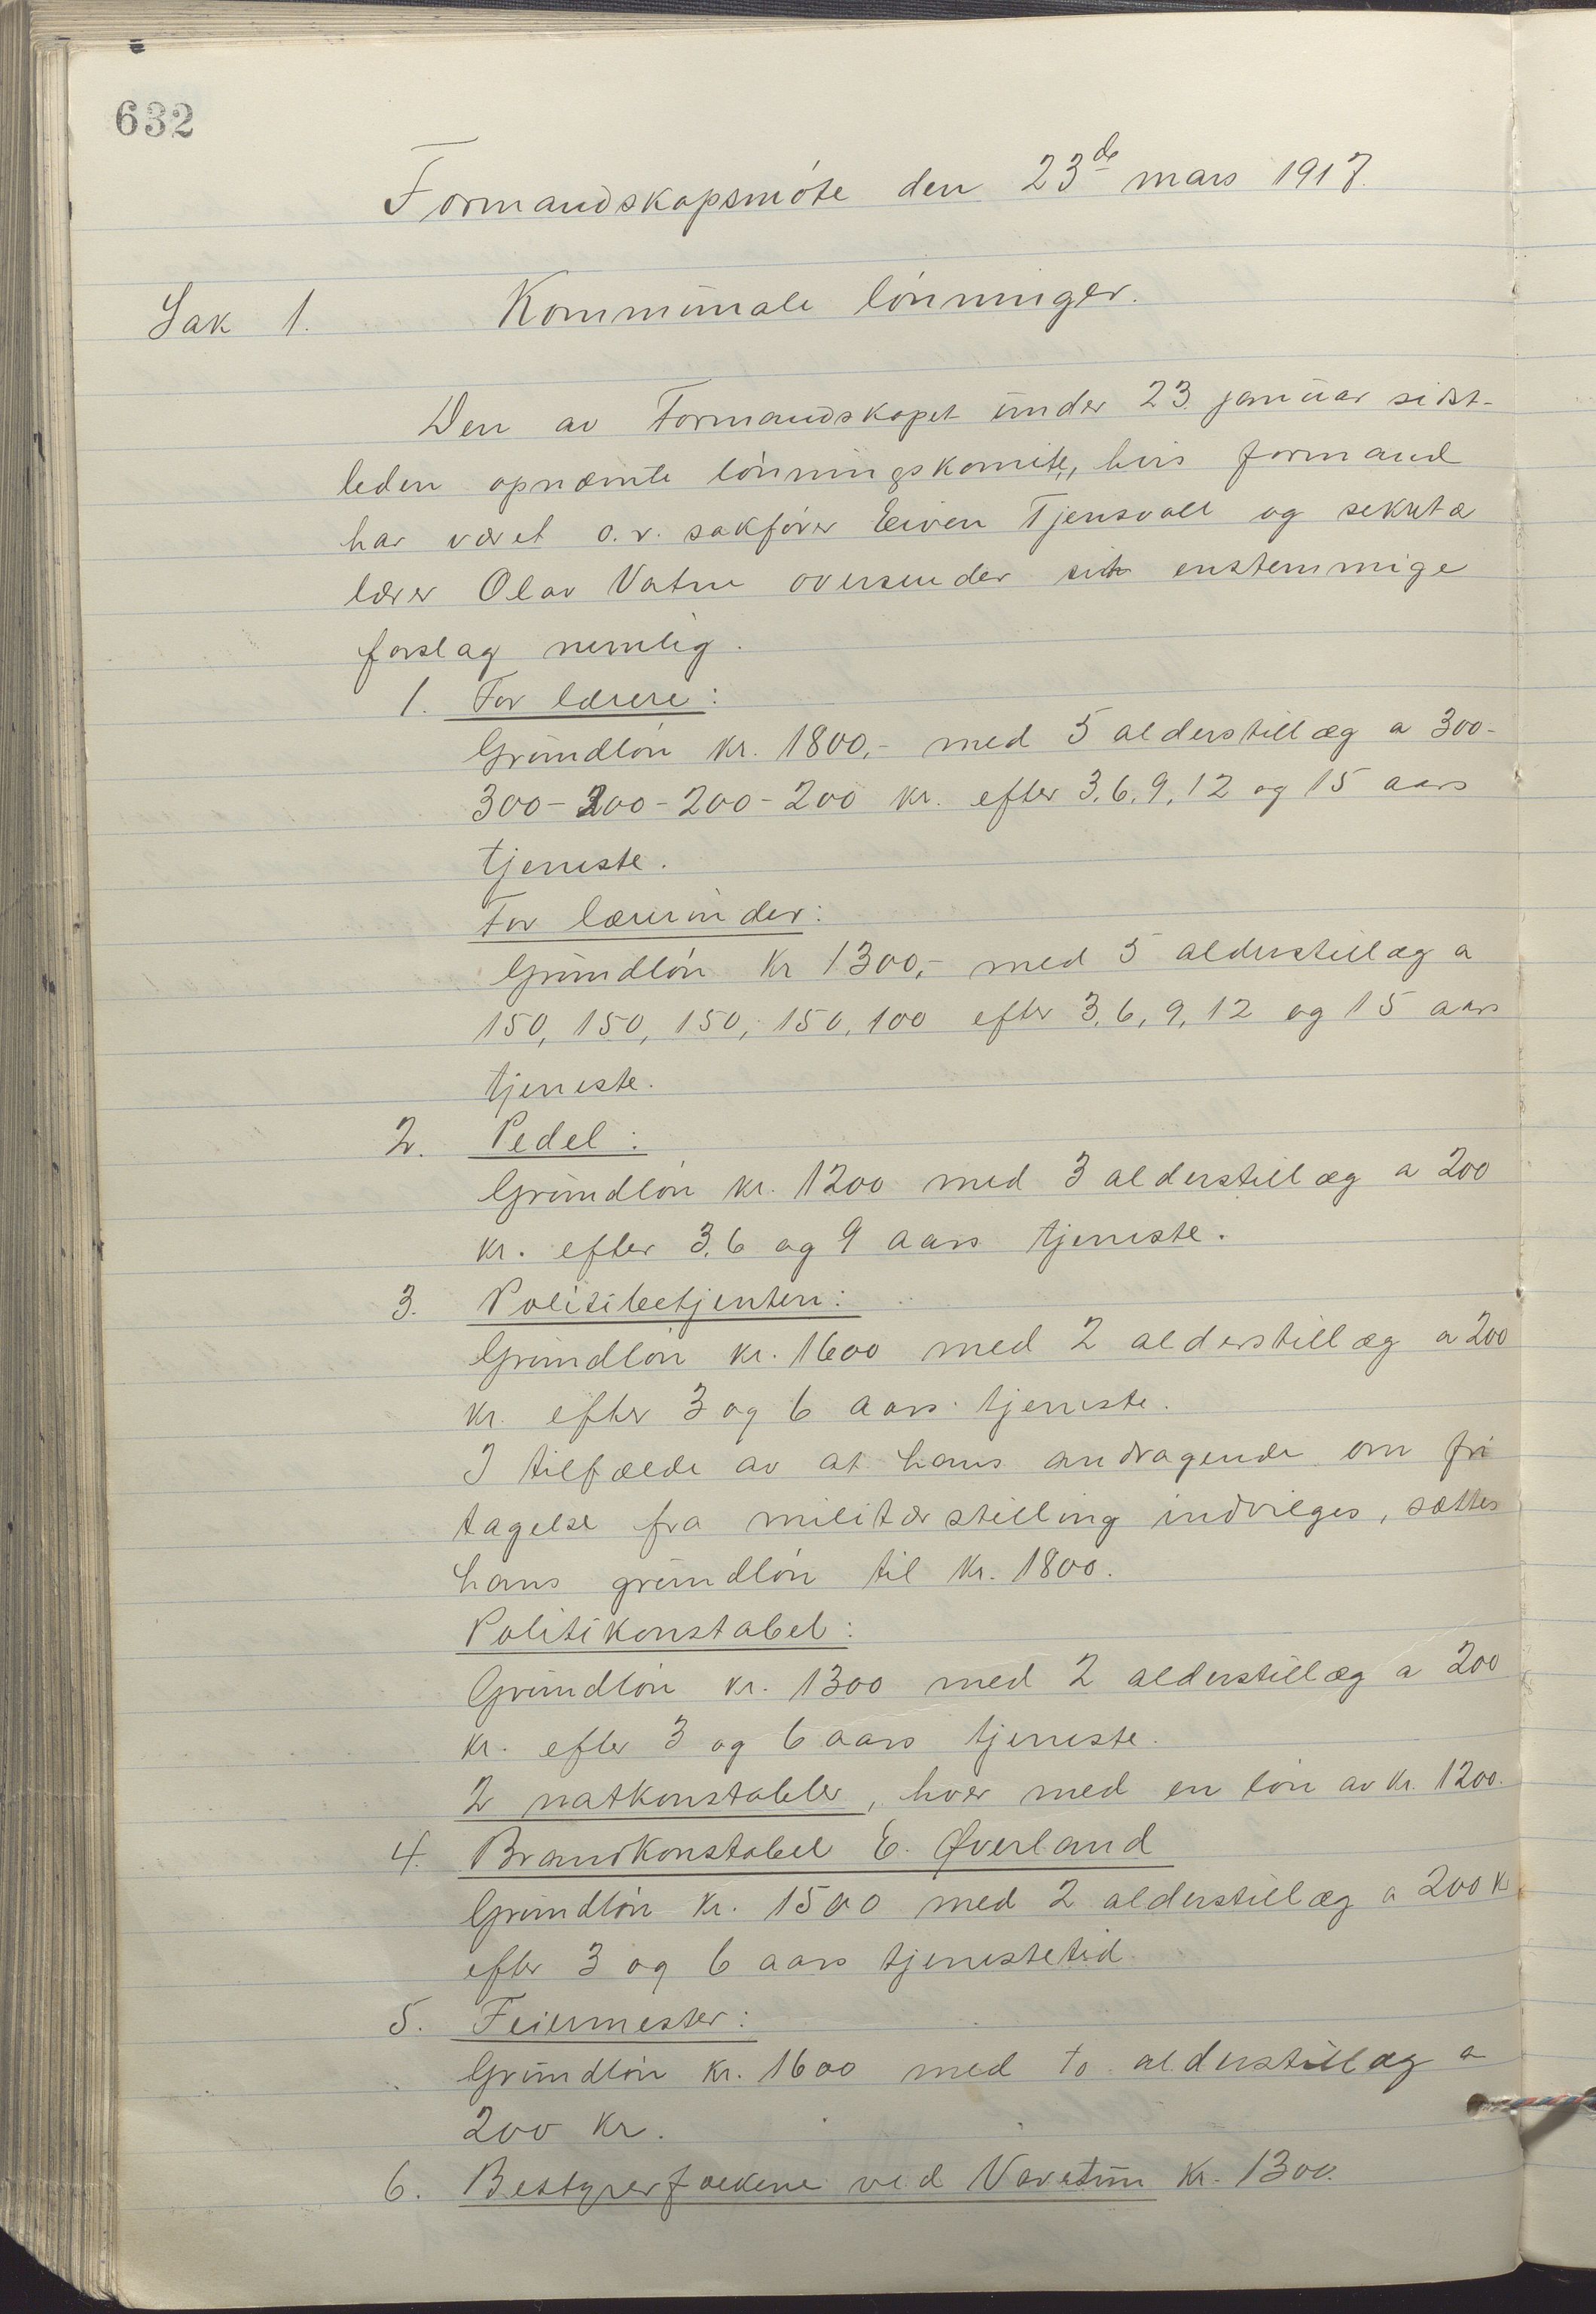 632
Formandskapsmóte den 23de mars 1917.
Sak 1. Kommunale lónninger.
Den av Formandskapet under 23. januar sidst-
leden opnævnte lónningskomite, hvis formand
har været o.r. sakfórer Eiven Tjensvoll og sekretæ
lærer Olav Vatne oversender sit enstemmige
forslag nemlig.
1. For lærere:
Grundlón kr. 1800,- med 5 alderstillæg a 300-
300-200-200-200 kr. efter 3, 6, 9, 12 og 15 aars
tjeneste.
For lærerinder:
Grundlón kr 1300,- med 5 alderstillæg a
150, 150, 150, 150, 100 efter 3, 6, 9, 12 og 15 aars
tjeneste.
2. Pedel:
Grundlón kr. 1200 med 3 alderstillæg a 200
kr. efter 3, 6 og 9 aars tjeneste.
3. Politibetjenten:
Grundlón kr. 1600 med 2 alderstillæg a 200
kr. efter 3 og 6 aars tjeneste.
I tilfælde av at hans andragende om fri
tagelse fra militærstilling indvilges, sættes
hans grundlón til kr. 1800.
Politikonstabel:
Grundlón kr. 1300 med 2 alderstillæg a 200
kr. efter 3 og 6 aars tjeneste.
2 natkonstabler, hver med en lón av kr. 1200.
4. Brandkonstabel E. Øverland
Grundlón kr. 1500 med 2 alderstillæg a 200 k
efter 3 og 6 aars tjenestetid
5. Feiermester:
Grundlón kr. 1600 med to alderstillæg a
200 kr.
6. Bestyrerfolkene ved Vavatun kr. 1300.